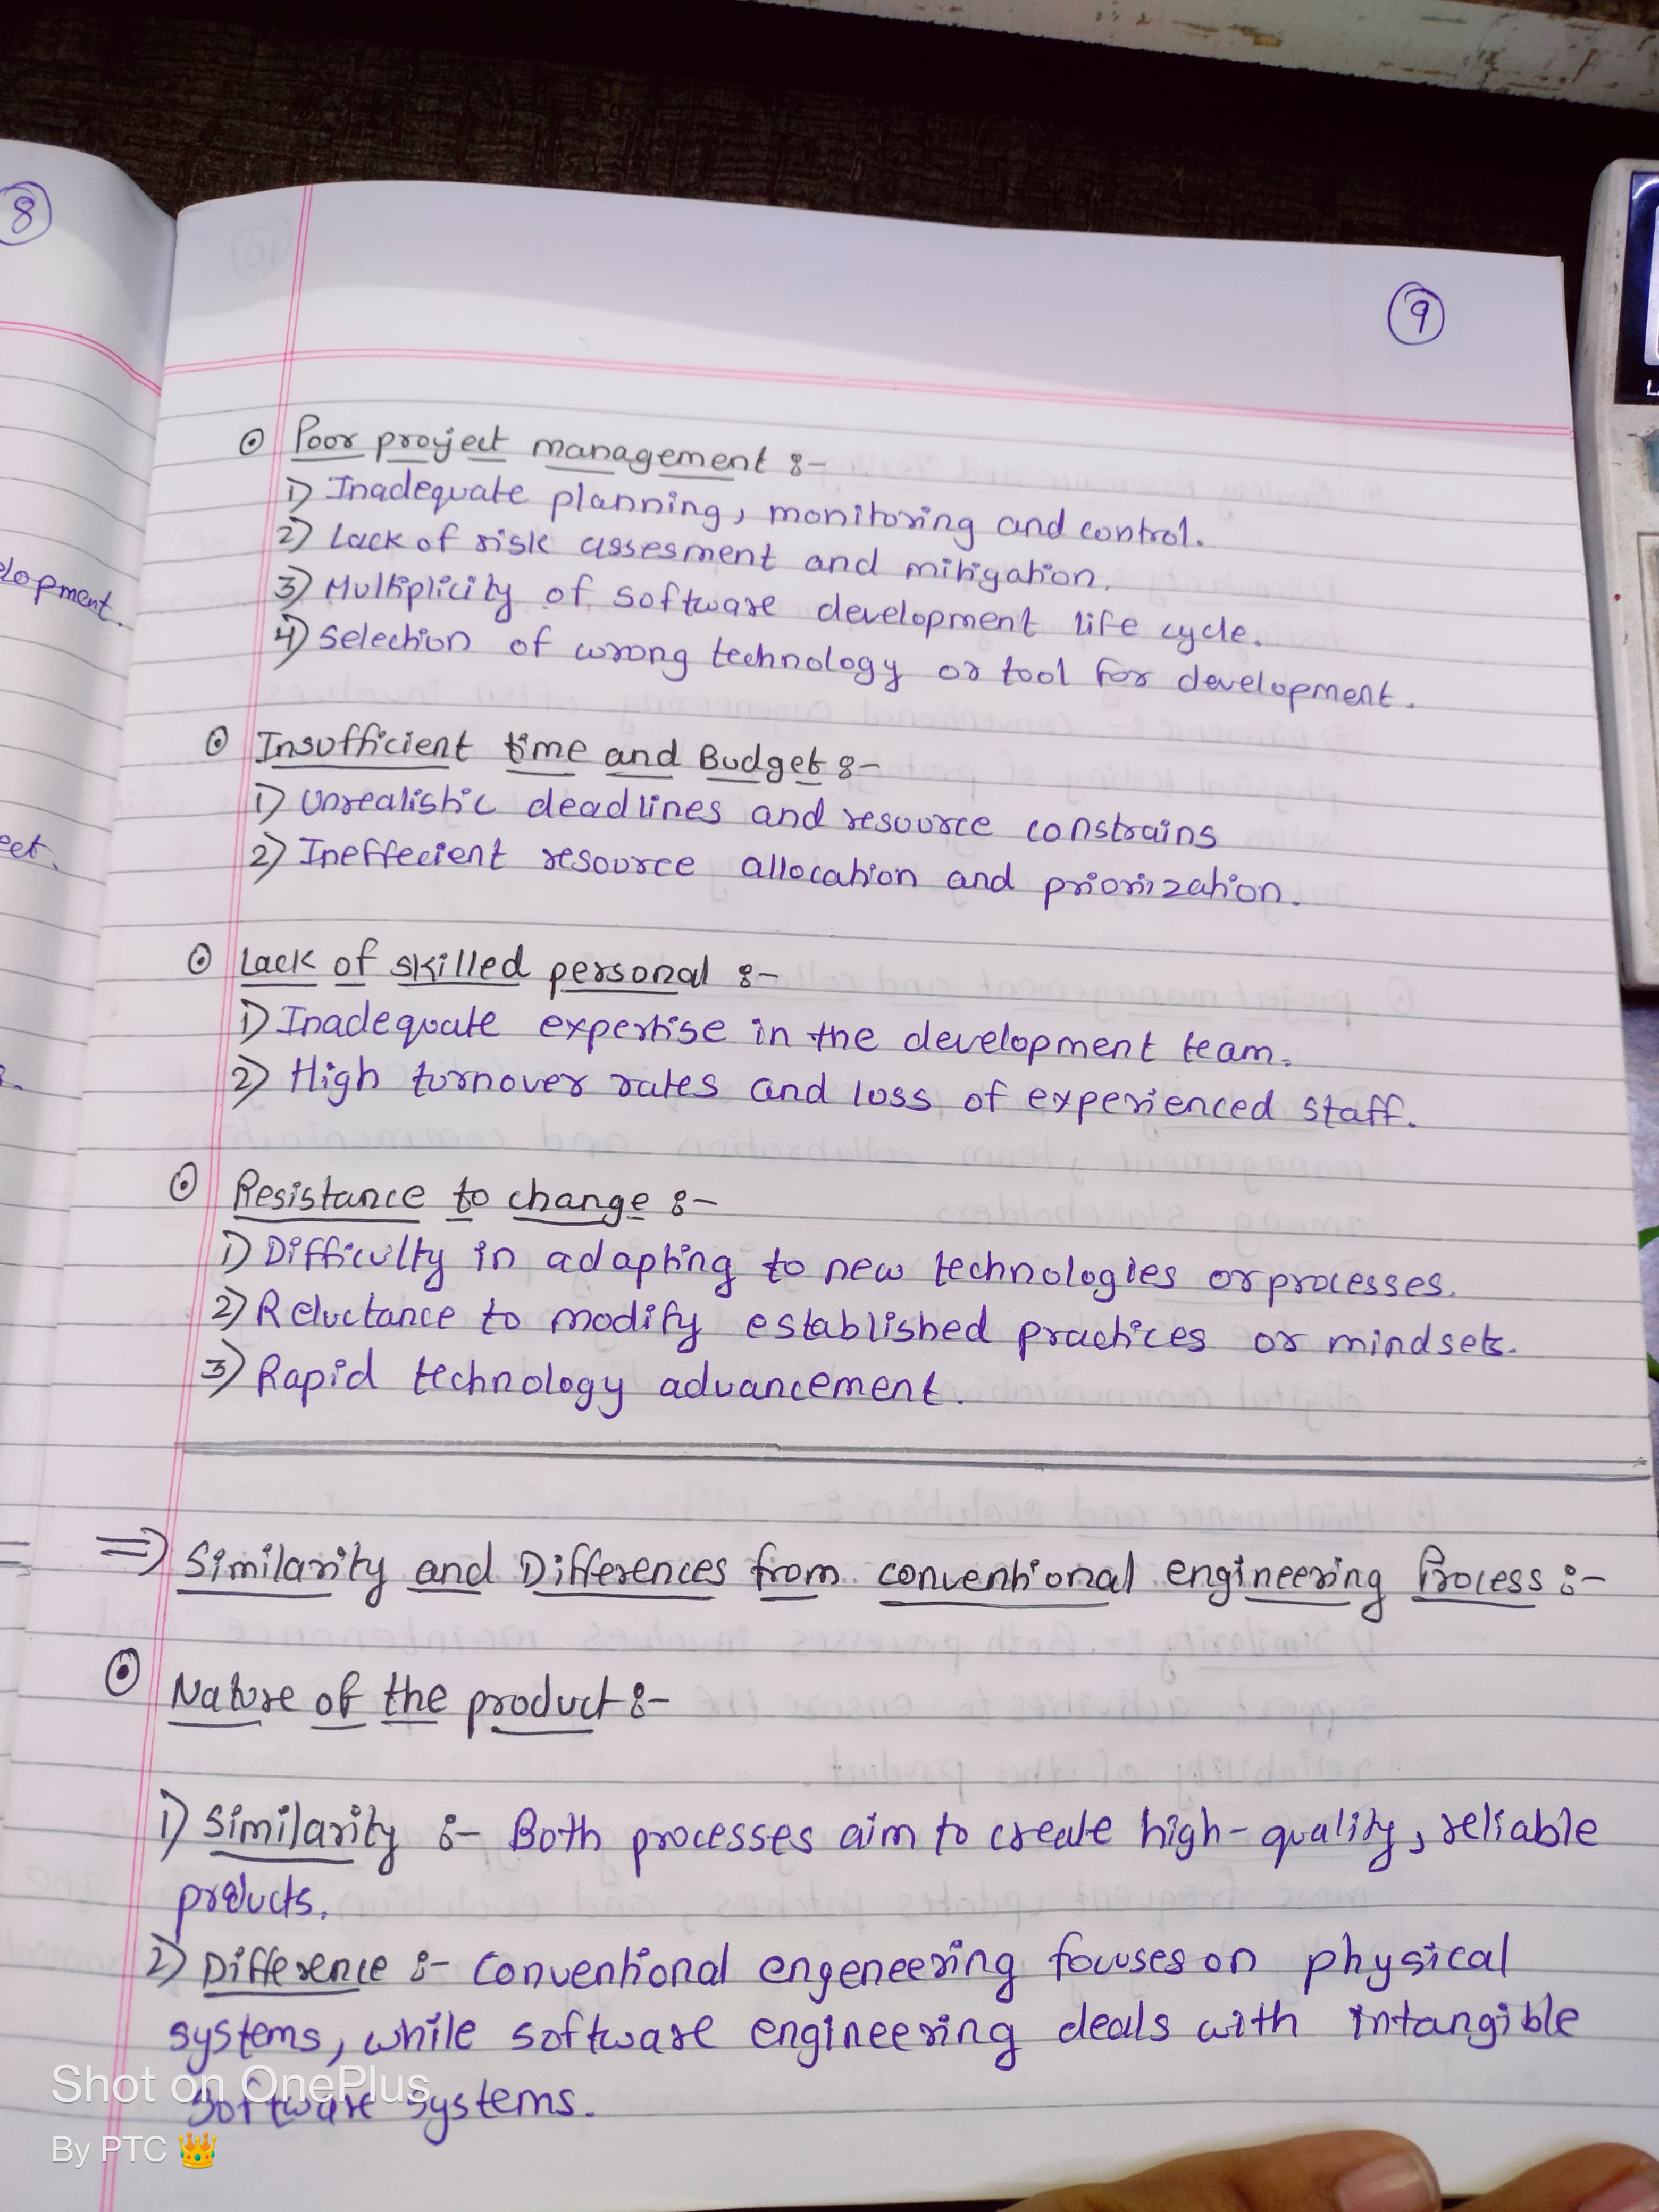 8
9
lopment.
ect.
⊙ Poor project management :-
1) Inadequate planning, monitoring and control.
2) Lack of risk assesment and mitigation.
3) Multiplicity of software development life cycle.
4) Selection of wrong technology or tool for development.
⊙ Insufficient time and Budget :-
1) Unrealistic deadlines and resource constrains
2) Ineffecient resource allocation and priorization.
⊙ Lack of skilled personal :-
1) Inadequate expertise in the development team.
2) High turnover rates and loss of experienced staff.
⊙ Resistance to change :-
1) Difficulty in adapting to new technologies or processes.
2) Reluctance to modify established practices or mindsets.
3) Rapid technology advancement.
⇒ Similarity and Differences from conventional engineering Process :-
⊙ Nature of the product :-
1) Similarity :- Both processes aim to create high-quality, reliable
products.
2) Difference :- Conventional engeneering focuses on physical
systems, while software engineering deals with intangible
software systems.
Shot on OnePlus
By PTC 👑